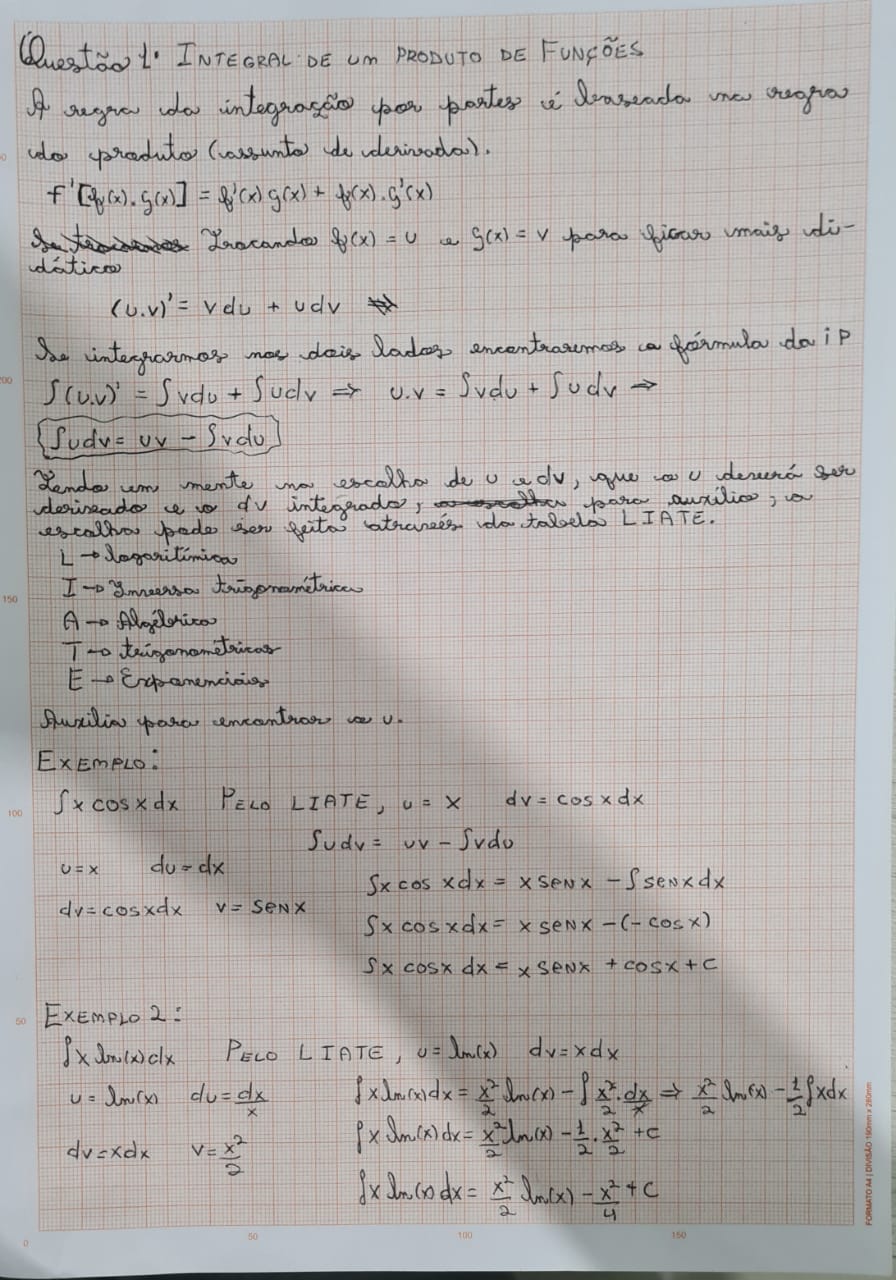 Questão 1. INTEGRAL DE UM PRODUTO DE FUNÇÕES
A regra da integração por partes é baseada na regra
do produto (assunto de derivada).
f'[f(x).g(x)] = f'(x) g(x) + f(x).g'(x)
Trocando f(x) = u e g(x) = v para ficar mais di-
dático
(u.v)' = vdu + udv
Se integrarmos nos dois lados encontraremos a fórmula da iP
∫(u.v)' = ∫vdu + ∫udv ⇒ u.v = ∫vdu + ∫udv →
∫udv = uv - ∫vdu
Tendo em mente na escolha de u e dv, que o u deverá ser
derivado e o dv integrado, para auxílio, a
escolha pode ser feita através da tabela LIATE.
L → logaritímica
I → Inversa trigonométrica
A → Algébrica
T → trigonométricas
E → Exponenciais
Auxilia para encontrar o u.
EXEMPLO:
∫x cosx dx PELO LIATE, u = x dv = cosx dx
∫udv = uv - ∫vdu
u = x du = dx
∫x cos x dx = x senx - ∫senx dx
dv = cosxdx v = senx
∫x cosx dx = x senx - (-cosx)
∫x cosx dx = x senx + cosx + c
EXEMPLO 2:
∫x ln(x)dx PELO LIATE, u = ln(x) dv = xdx
u = ln(x) du = dx/x ∫x ln(x) dx = x²/2 ln(x) - ∫x²/2 . dx/x ⇒ x²/2 ln(x) - 1/2 ∫xdx
∫x ln(x) dx = x²/2 ln(x) - 1/2 . x²/2 + c
dv = xdx v = x²/2
∫x ln(x) dx = x²/2 ln(x) - x²/4 + C
200
150
100
50
0
50
100
150
FORMATO A4 | DIVISÃO 190mm x 280mm